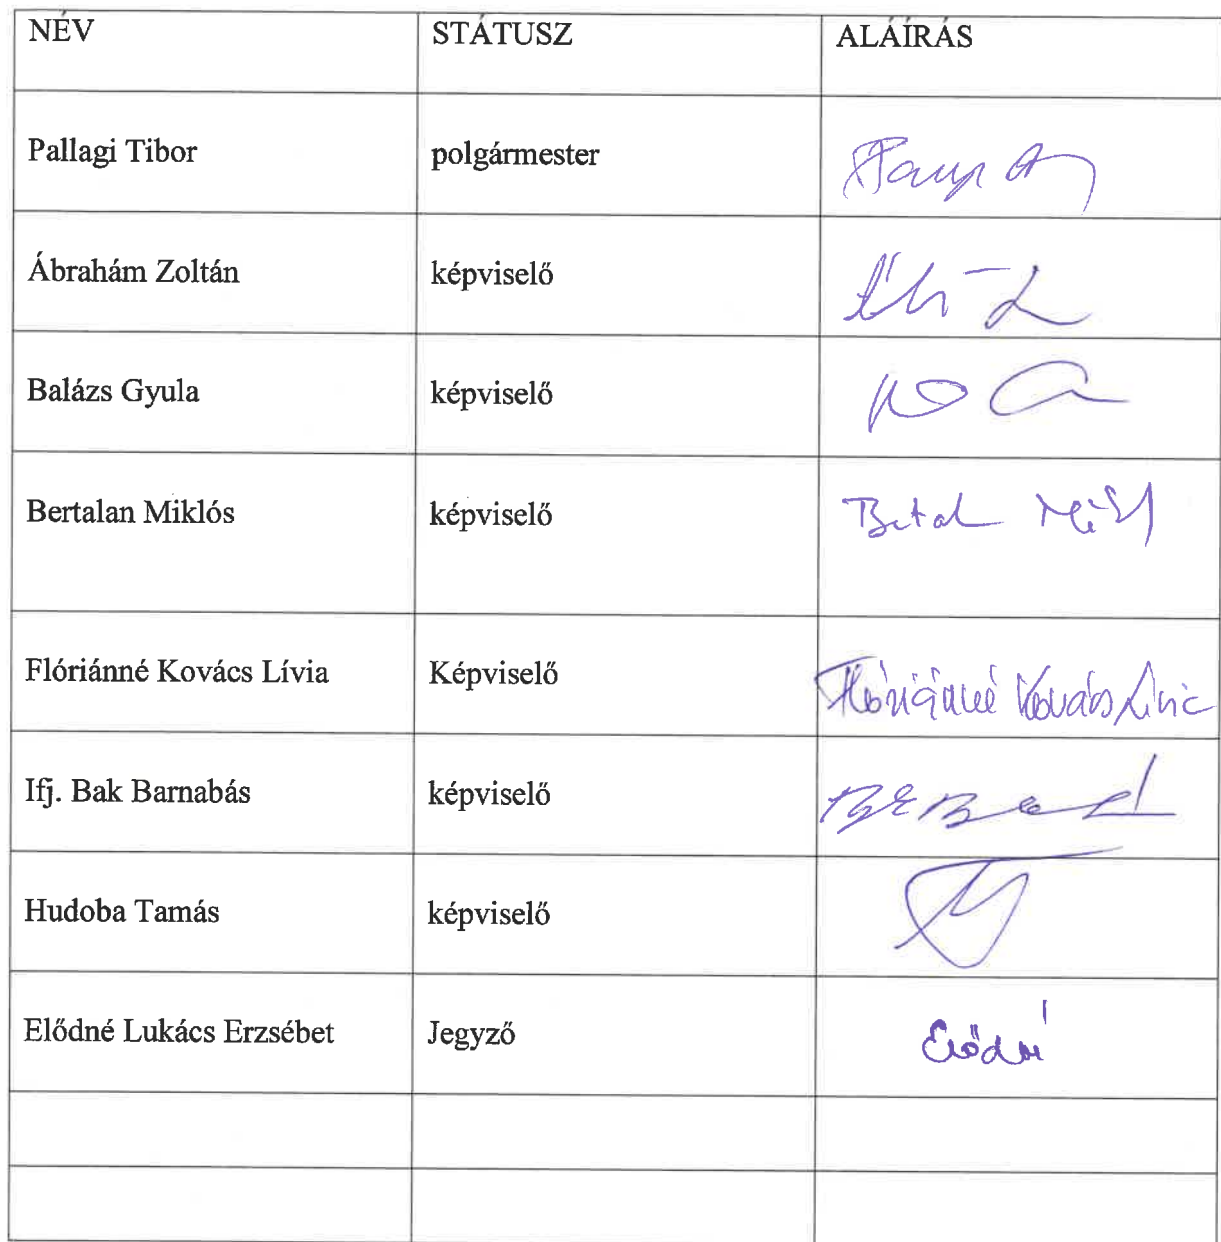 NÉV STÁTUSZ ALÁÍRÁS
Pallagi Tibor polgármester
Ábrahám Zoltán képviselő
Balázs Gyula képviselő
Bertalan Miklós képviselő
Flóriánné Kovács Lívia Képviselő Flóriánné Kovács Lívia
Ifj. Bak Barnabás képviselő
Hudoba Tamás képviselő
Elődné Lukács Erzsébet Jegyző Elődné